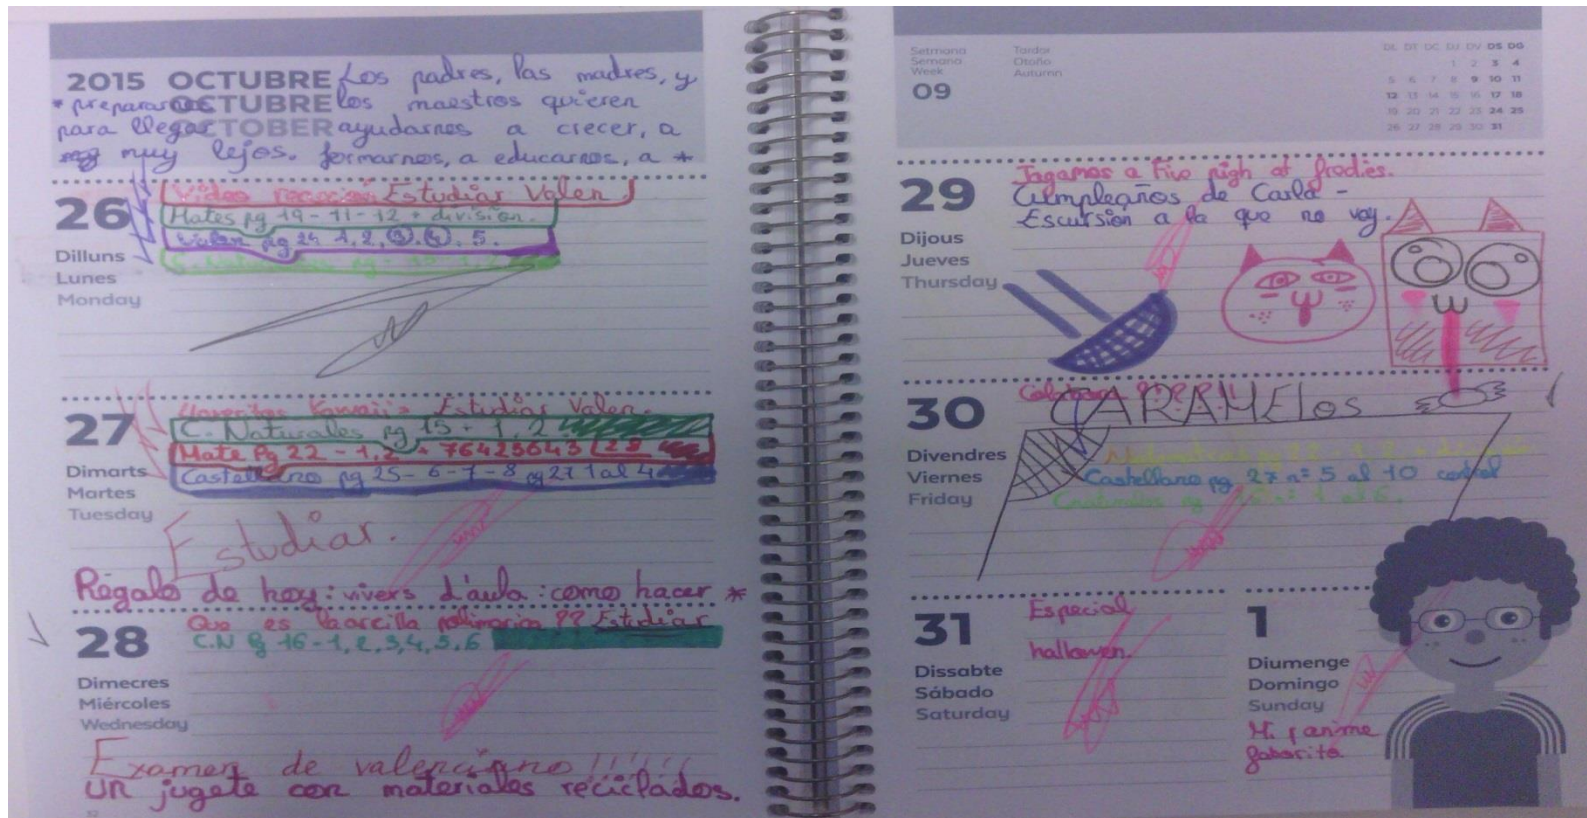 2015 OCTUBRE Los padres, las madres, y
* prepararnos OCTUBRE los maestros quieren
para llegar OCTOBER ayudarnos a crecer, a
muy lejos. formarnos, a educarnos, a *
26
Dilluns
Lunes
Monday
Video reacción Estudiar Valen
Mates pg 19 - 11 - 12 + división.
Valen pg 24 1, 2, 3, 4, 5.
C. Naturales pg
27
Dimarts
Martes
Tuesday
Kawaii Estudiar Valen.
C. Naturales pg 15 - 1, 2.
Mate Pg 22 - 1,2 + 76425643 28
Castellano pg 25 - 6 - 7 - 8 pg 27 1 al 4
Estudiar.
Regalo de hoy: vivers d'aula: como hacer *
28
Dimecres
Miércoles
Wednesday
Que es la arcilla polimerica ?? Estudiar
C.N Pg 16 - 1, 2, 3, 4, 5, 6
Examen de valenciano !!!!!!
un jugete con materiales reciclados.
Setmana
Semana
Week
09
Tardor
Otoño
Autumn
DL DT DC DJ DV DS DG
1 2 3 4
5 6 7 8 9 10 11
12 13 14 15 16 17 18
19 20 21 22 23 24 25
26 27 28 29 30 31
29
Dijous
Jueves
Thursday
Jugamos a Five nigh at fredies.
Cumpleaños de Carla -
Escursión a la que no voy.
30
Divendres
Viernes
Friday
CARAMELOS
Castellano pg 27 nº 5 al 10 control
31
Dissabte
Sábado
Saturday
Especial
hallowen.
1
Diumenge
Domingo
Sunday
Mi anime
faborito